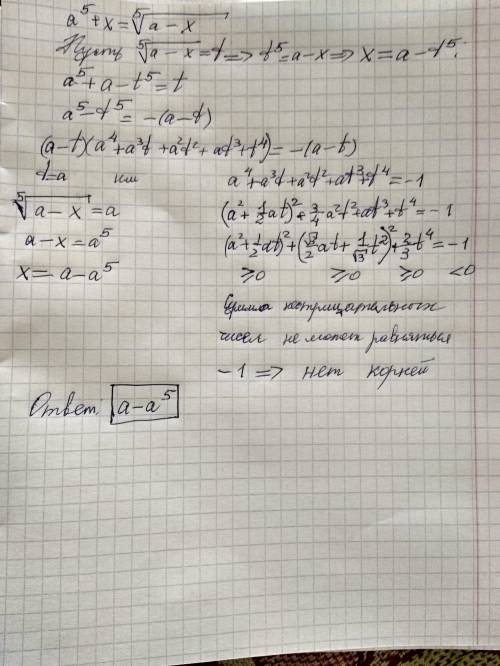 a⁵ + x = ⁵√(a - x)
Пусть ⁵√(a - x) = t => t⁵ = a - x => x = a - t⁵;
a⁵ + a - t⁵ = t
a⁵ - t⁵ = -(a - t)
(a - t)(a⁴ + a³t + a²t² + at³ + t⁴) = -(a - t)
t = a или a⁴ + a³t + a²t² + at³ + t⁴ = -1
⁵√(a - x) = a (a² + 1/2 at)² + 3/4 a²t² + at³ + t⁴ = -1
a - x = a⁵ (a² + 1/2 at)² + (√3/2 at + 1/√3 t²)² + 2/3 t⁴ = -1
x = a - a⁵ ≥0 ≥0 ≥0 <0
Сумма неотрицательных
чисел не может равняться
-1 => нет корней
Ответ. a - a⁵